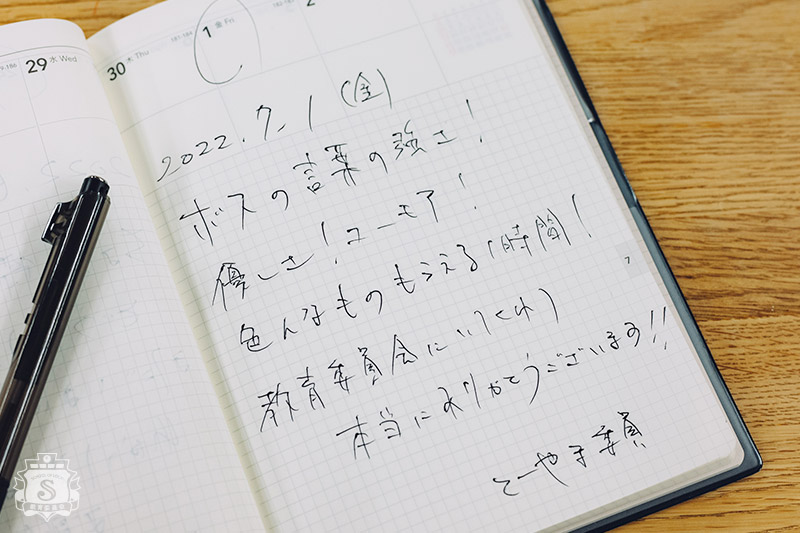 29 水 Wed
30 木 Thu
181-184
1 金 Fri
182-183
2
2022.7.1(金)
ボスの言葉の強さ!
優しさ!ユーモア!
色んなものもらえる1時間!
教育委員会にいてくれて
本当にありがとうございます!!
とーやま委員
7
S